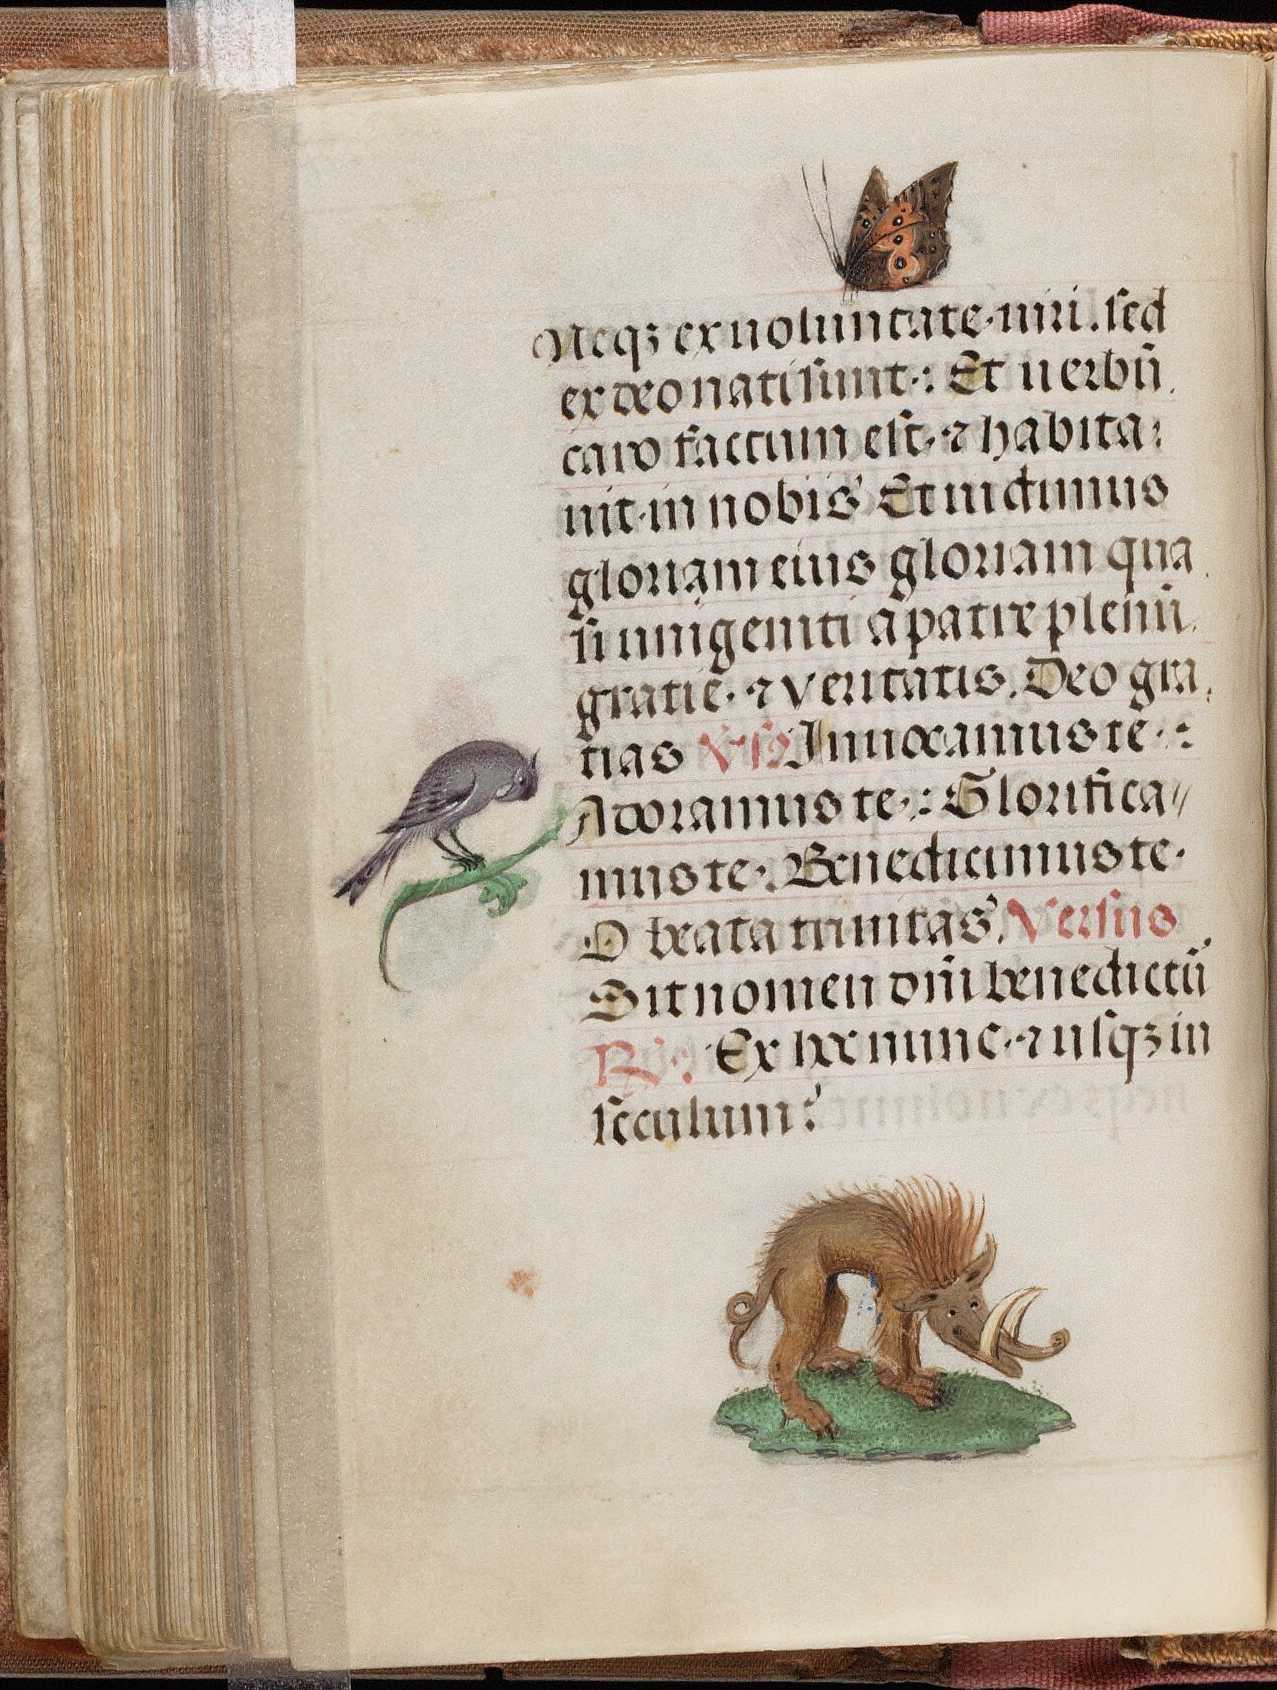 Neqꝫ ex uoluntate·uiri.sed
ex deo nati sunt·: Et uerbū
caro factum est·⁊ habita:
uit·in nobis' Et uidimus
gloriam eius gloriam qua
si unigeniti a patre plenū.
gratie·⁊ veritatis. Deo gra
tias Inuocamus te·:
Adoramus te·: Glorifica//
mus te·: Benedicimus te·
O beata trinitas'. Versus
Sit nomen dn̄i benedictū
R̃·: Ex hoc nunc·⁊ usqꝫ in
seculum:'